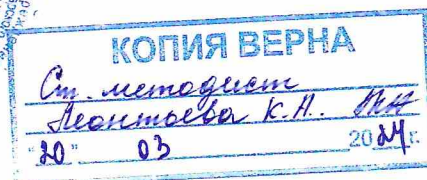 КОПИЯ ВЕРНА
Ст. методист
Леонтьева К.А.
"20" 03 2024 г.